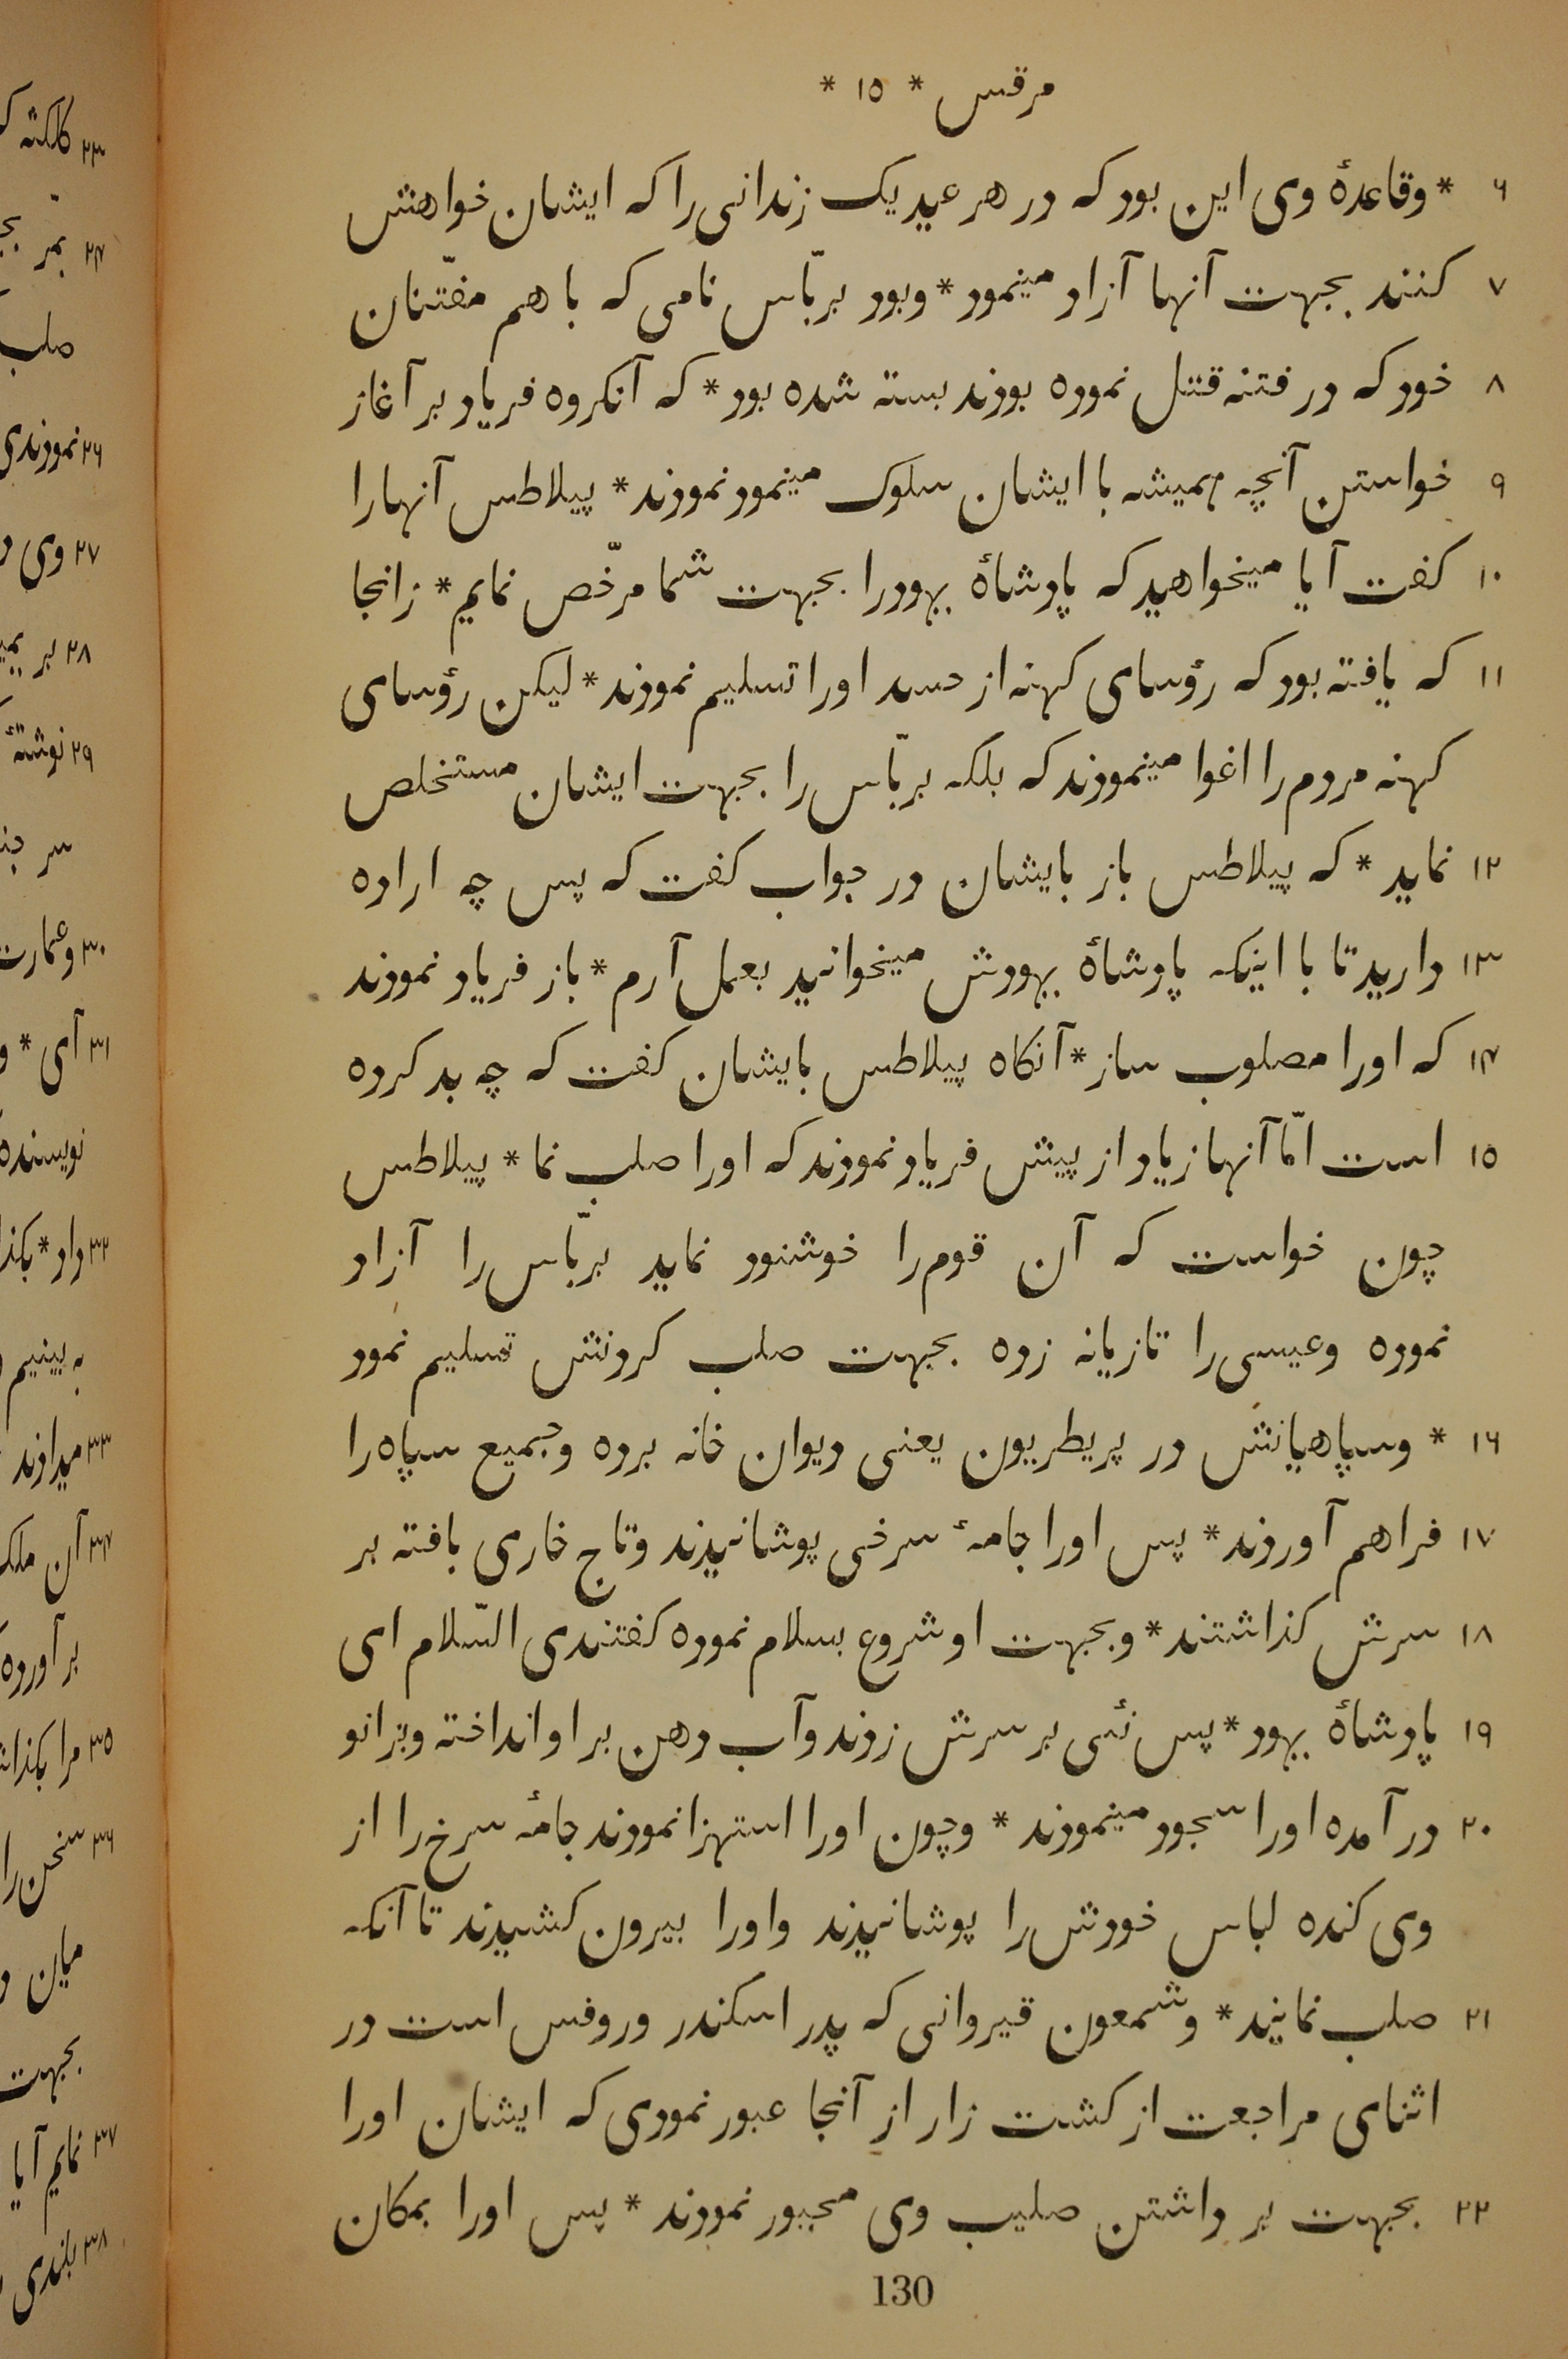 مرقس * ١٥ *
٦ * وقاعدهٔ وی این بود که در هر عید یک زندانی را که ایشان خواهش
٧ کنند بجهت آنها آزاد مینمود * وبود بربّاس نامی که با هم مفتّنان
٨ خود که در فتنه قتل نموده بودند بسته شده بود * که آنکروه فریاد بر آغاز
٩ خواستن آنچه همیشه با ایشان سلوک مینمود نمودند * پیلاطس آنها را
١٠ کفت آیا میخواهید که پادشاهٔ یهود را بجهت شما مرخّص نمایم * زانجا
١١ که یافته بود که رؤسای کهنه از حسد اورا تسلیم نمودند * لیکن رؤسای
کهنه مردم را اغوا مینمودند که بلکه بربّاس را بجهت ایشان مستخلص
١٢ نماید * که پیلاطس باز بایشان در جواب کفت که پس چه اراده
١٣ دارید تا با اینکه پادشاهٔ یهودش میخوانید بعمل آرم * باز فریاد نمودند
١٤ که اورا مصلوب ساز * آنکاه پیلاطس بایشان کفت که چه بد کرده
١٥ است امّا آنها زیاد از پیش فریاد نمودند که اورا صلب نما * پیلاطس
چون خواست که آن قوم را خوشنود نماید بربّاس را آزاد
نموده وعیسی را تازیانه زده بجهت صلب کردنش تسلیم نمود
١٦ * وسپاهیانش در پریطریون یعنی دیوان خانه برده وجمیع سپاه را
١٧ فراهم آوردند * پس اورا جامهٔ سرخی پوشانیدند وتاج خاری بافته بر
١٨ سرش کذاشتند * وبجهت او شروع بسلام نموده کفتندی السّلام ای
١٩ پادشاهٔ یهود * پس نئی بر سرش زدند وآب دهن بر او انداخته وبزانو
٢٠ در آمده اورا سجود مینمودند * وچون اورا استهزا نمودند جامهٔ سرخ را از
وی کنده لباس خودش را پوشانیدند واورا بیرون کشیدند تا آنکه
٢١ صلب نمایند * وشمعون قیروانی که پدر اسکندر وروفس است در
اثنای مراجعت از کشت زار از آنجا عبور نمودی که ایشان اورا
٢٢ بجهت بر داشتن صلیب وی مجبور نمودند * پس اورا بمکان
130